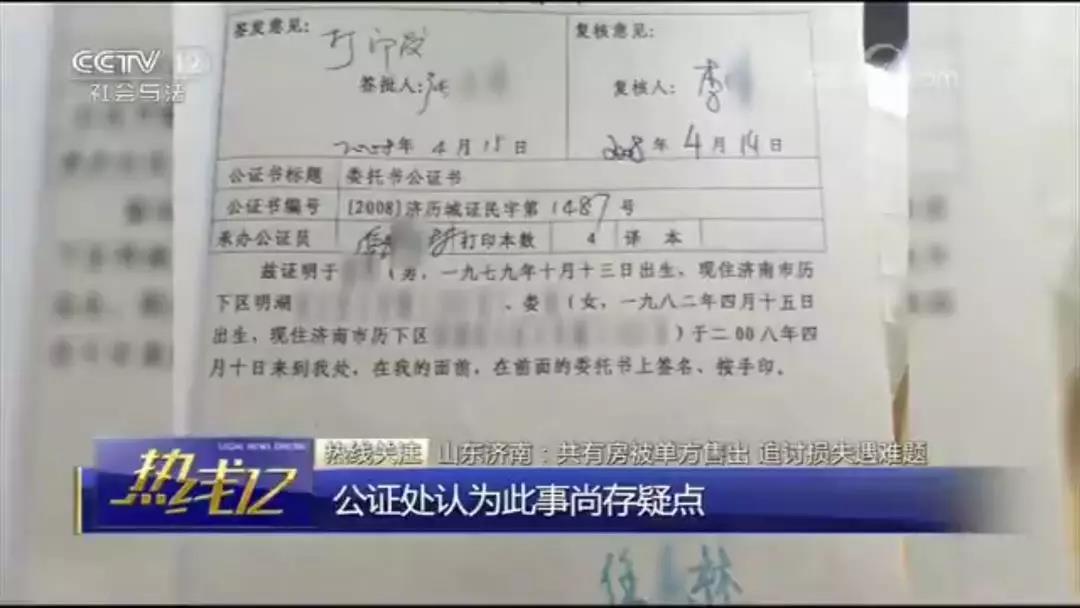 CCTV 12
社会与法
签发意见：
打印发
签批人：张
2008年 4 月 15 日
复核意见：
复核人：李
2008 年 4 月 14 日
公证书标题 委托书公证书
公证书编号 [2008]济历城证民字第 1487 号
承办公证员 打印本数 4 译 本
兹证明于（男，一九七九年十月十三日出生，现住济南市历
下区明湖 、娄（女，一九八二年四月十五日
出生，现住济南市历下区 ）于二00八年四
月十日来到我处，在我的面前，在前面的委托书上签名、按手印。
热线12
热线关注 山东济南：共有房被单方售出 追讨损失遇难题
公证处认为此事尚存疑点
任 林